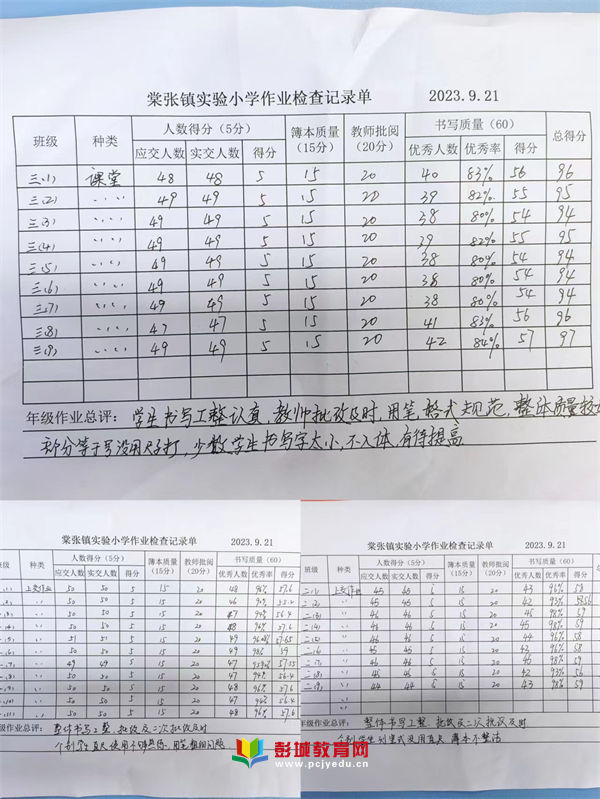 棠张镇实验小学作业检查记录单 2023.9.21
班级 种类 人数得分（5分） 簿本质量（15分） 教师批阅（20分） 书写质量（60） 总得分
应交人数 实交人数 得分 优秀人数 优秀率 得分
三(1) 课堂 48 48 5 15 20 40 83% 56 96
三(2) 〃 49 49 5 15 20 39 82% 55 95
三(3) 〃 49 49 5 15 20 38 80% 54 94
三(4) 〃 49 49 5 15 20 39 82% 55 95
三(5) 〃 49 49 5 15 20 38 80% 54 94
三(6) 〃 49 49 5 15 20 38 80% 54 94
三(7) 〃 49 49 5 15 20 38 80% 54 94
三(8) 〃 47 47 5 15 20 41 83% 56 96
三(9) 〃 49 49 5 15 20 42 84% 57 97
年级作业总评：学生书写工整认真，教师批改及时，用笔、格式规范，整体质量较
部分等于号没用尺子打，少数学生书写字太小，不入体，有待提高
棠张镇实验小学作业检查记录单 2023.9.21
种类 人数得分（5分） 簿本质量（15分） 教师批阅（20分） 书写质量（60）
应交人数 实交人数 得分 优秀人数 优秀率 得分
上交作业 50 50 5 15 20 48 96% 57.6
50 50 5 15 20 46
50 50 5 15 20 47 56.4
50 50 5 15 20 48 96% 57.6
51 51 5 15 20 49
50 50 5 15 20 49 98% 59
49 49 5 15 20 47
50 50 5 15 20 47 94% 56.4
50 50 5 15 20 48 96% 57.6
50 50 5 15 20 47 94% 56.4
50 50 5 15 20 48 96% 57.6
作业总评：整体书写工整，批改及二次批改及时
个别学生直尺使用不够熟练，用笔粗细问题
棠张镇实验小学作业检查记录单 2023.9.21
班级 种类 人数得分（5分） 簿本质量（15分） 教师批阅（20分） 书写质量（60）
应交人数 实交人数 得分 优秀人数 优秀率 得分
二(1) 上交作业 45 45 5 15 20 43 96% 58
二(2) 〃 45 45 5 15 20 42 93%
二(3) 〃 46 46 5 15 20 45 98% 59
二(4) 〃 46 46 5 15 20 45 98% 59
二(5) 〃 46 46 5 15 20 44 96% 58
二(6) 〃 45 45 5 15 20 43 96% 58
二(7) 〃 46 46 5 15 20 45 98% 59
二(8) 〃 45 45 5 15 20 42 93% 56
二(9) 〃 44 44 5 15 20 43 98% 59
年级作业总评：整体书写工整，批改及二次批改及时
个别学生列竖式没用直尺，簿本不整洁
彭城教育网
www.pcjyedu.cn